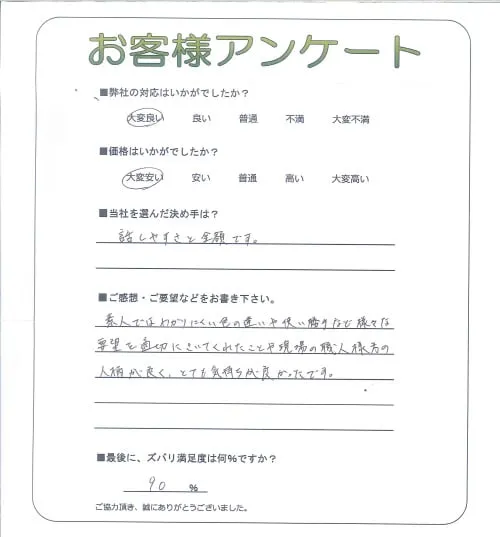 お客様アンケート
■弊社の対応はいかがでしたか？
大変良い 良い 普通 不満 大変不満
■価格はいかがでしたか？
大変安い 安い 普通 高い 大変高い
■当社を選んだ決め手は？
話しやすさと金額です。
■ご感想・ご要望などをお書き下さい。
素人ではわかりにくい色の違いや使い勝手など様々な
要望を適切にきいてくれたことや現場の職人様方の
人柄が良く、とても気持ちが良かったです。
■最後に、ズバリ満足度は何％ですか？
90 ％
ご協力頂き、誠にありがとうございました。